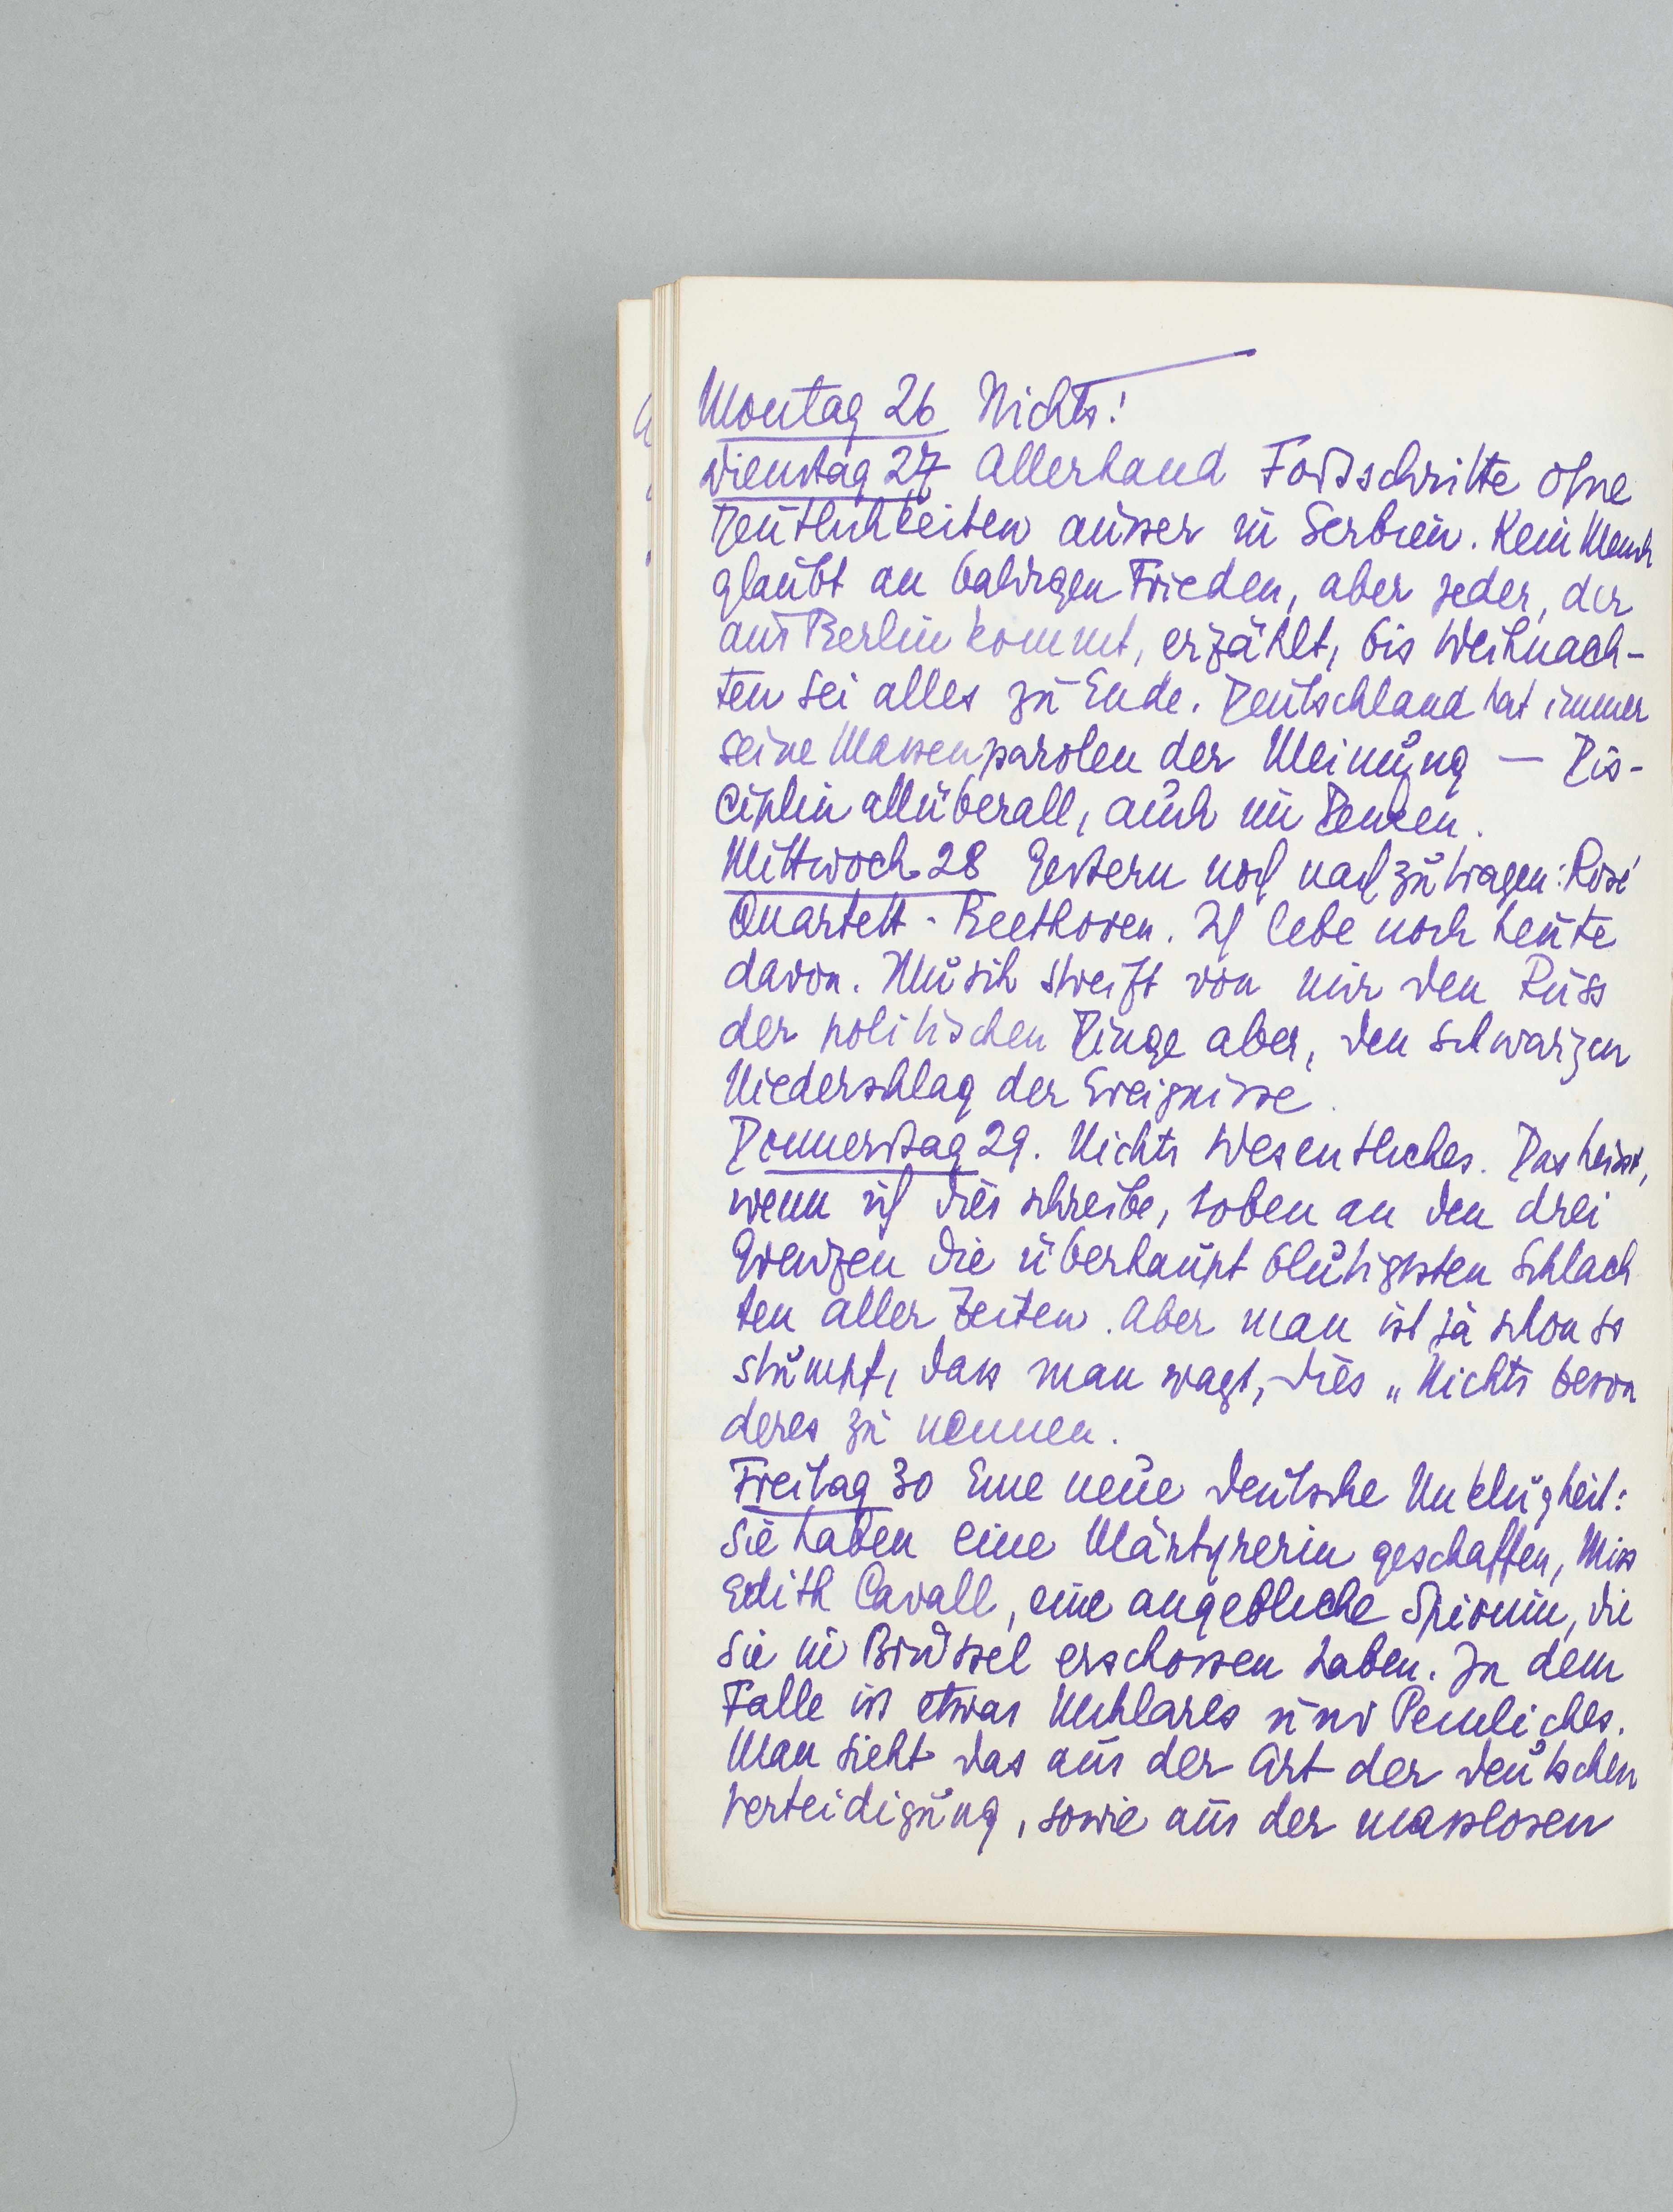 Montag 26 Nichts!
Dienstag 27 Allerhand Fortschritte ohne
Deutlichkeiten ausser in Serbien. Kein Mensch
glaubt an baldigen Frieden, aber jeder, der
aus Berlin kommt, erzählt, bis Weihnach-
ten sei alles zu Ende. Deutschland hat immer
seine Massenparolen der Meinung — Dis-
ciplin allüberall, auch im Denken.
Mittwoch 28 Gestern noch nachzutragen: Rosé
Quartett - Beethoven. Ich lebe noch heute
davon. Musik streift von mir den Russ
der politischen Dinge aber, den schwarzen
Niederschlag der Ereignisse.
Donnerstag 29. Nichts Wesentliches. Das heisst,
wenn ich dies schreibe, toben an den drei
Grenzen die überhaupt blutigsten Schlach
ten aller Zeiten. Aber man ist ja schon so
stumpf, dass man wagt, dies „Nichts beson
deres zu nennen.
Freitag 30 Eine neue deutsche Unklugheit:
Sie haben eine Märtyrerin geschaffen, Miss
Edith Cavall, eine angebliche Spionin, die
sie in Brüssel erschossen haben. In dem
Falle ist etwas Unklares und Peinliches.
Man sieht das aus der Art der deutschen
Verteidigung, sowie aus der masslosen